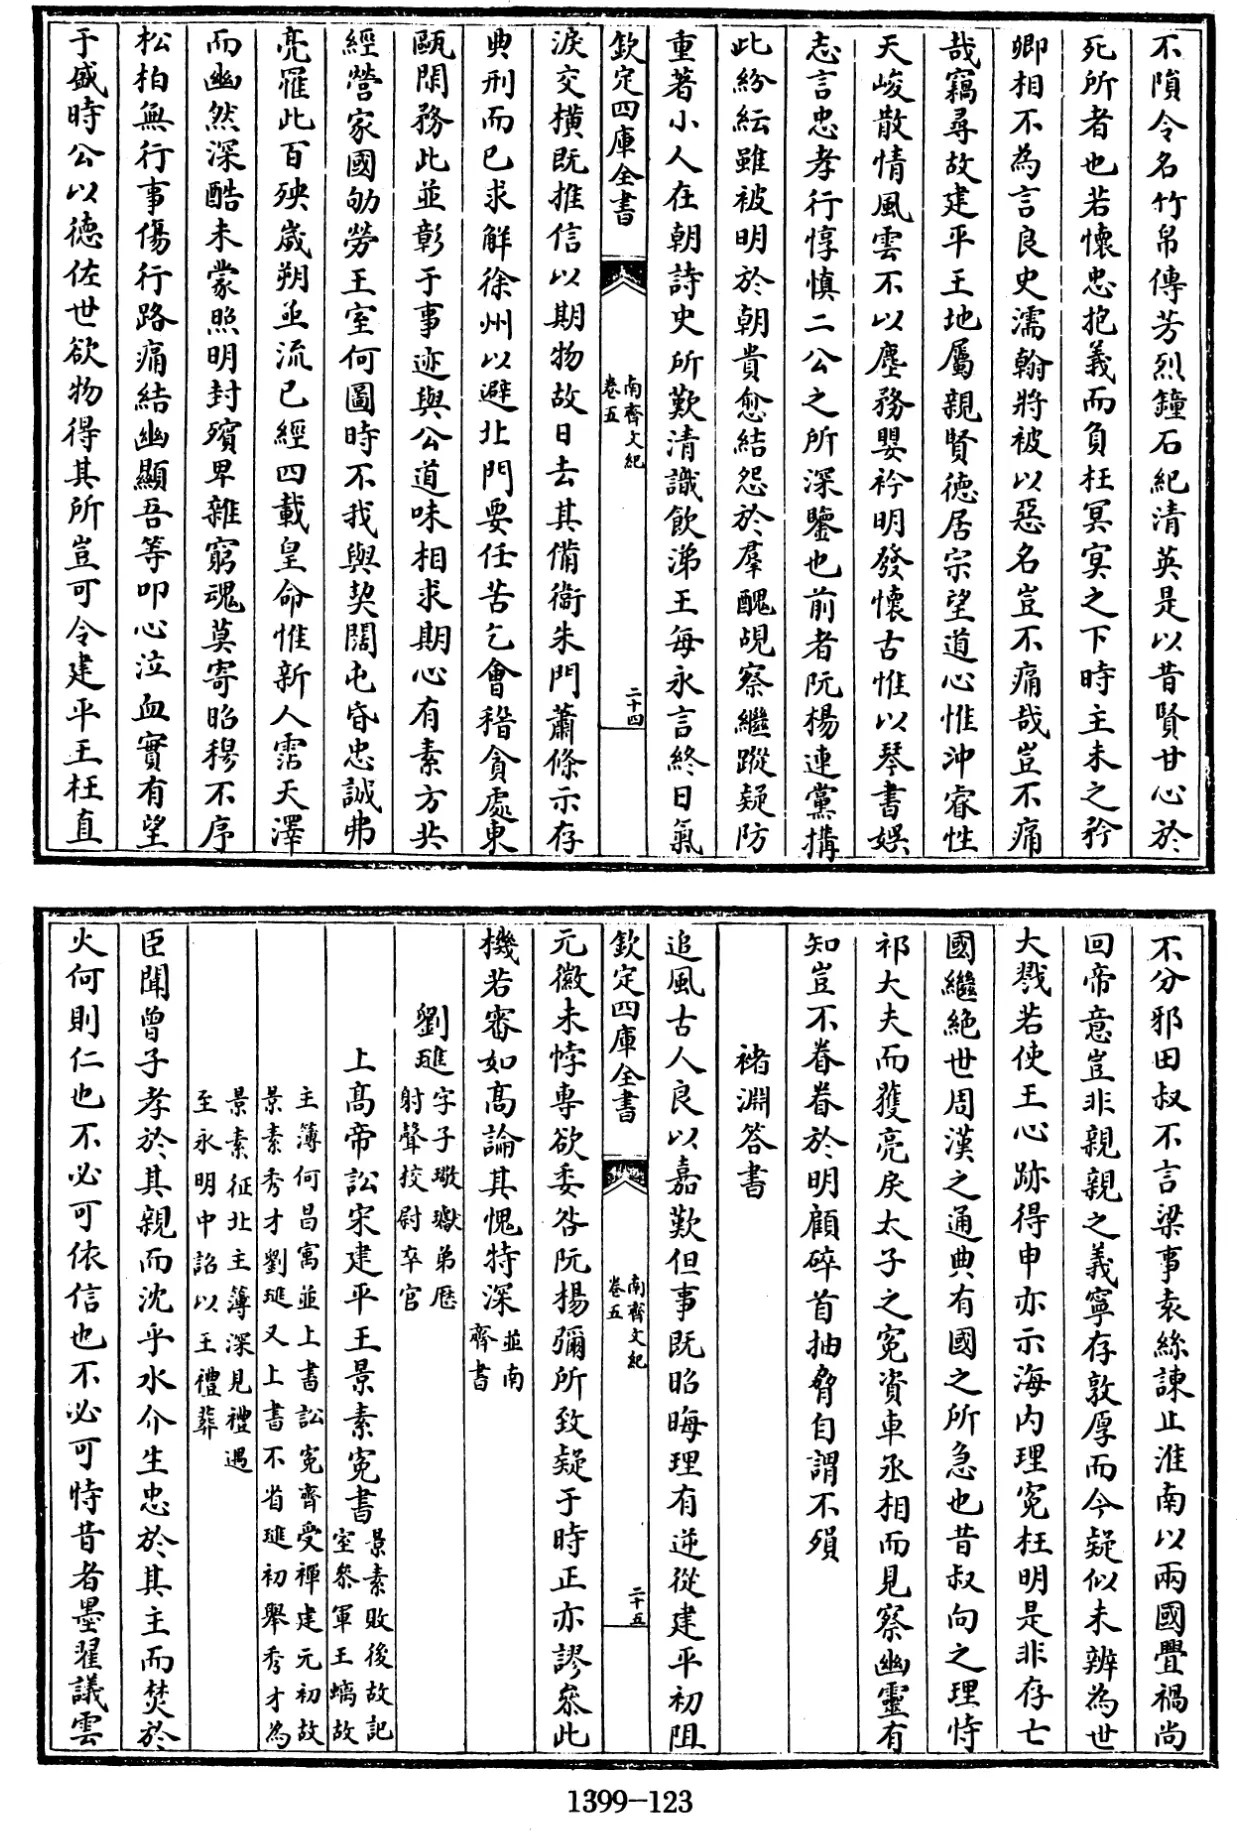 不隕令名竹帛傳芳烈鐘石紀清英是以昔賢甘心於
死所者也若懷忠抱義而負枉冥冥之下時主未之矜
卿相不為言良史濡翰將被以惡名豈不痛哉豈不痛
哉竊尋故建平王地屬親賢德居宗望道心惟沖睿性
天峻散情風雲不以塵務嬰衿明發懷古惟以琴書娛
志言忠孝行惇慎二公之所深鑒也前者阮楊連黨構
此紛紜雖被明於朝貴愈結怨於羣醜覘察繼蹤疑防
重著小人在朝詩史所歎清識飲涕王每永言終日氣
欽定四庫全書
南齊文紀
卷五
二十四
淚交橫既推信以期物故日去其備衞朱門蕭條示存
典刑而已求解徐州以避北門要任苦乞會稽貪處東
甌閑務此並彰于事迹與公道味相求期心有素方共
經營家國劬勞王室何圖時不我與契闊屯昏忠誠弗
亮罹此百殃歲朔亟流已經四載皇命惟新人霑天澤
而幽然深酷未蒙照明封殯卑雜窮魂莫寄昭穆不序
松柏無行事傷行路痛結幽顯吾等叩心泣血實有望
于盛時公以德佐世欲物得其所豈可令建平王枉直
不分邪田叔不言梁事袁絲諫止淮南以兩國釁禍尚
回帝意豈非親親之義寧存敦厚而今疑似未辨為世
大戮若使王心跡得申亦示海內理寃枉明是非存亡
國繼絕世周漢之通典有國之所急也昔叔向之理恃
祁大夫而獲亮戾太子之寃資車丞相而見察幽靈有
知豈不眷眷於明顧碎首抽脅自謂不殞
褚淵答書
追風古人良以嘉歎但事既昭晦理有逆從建平初阻
欽定四庫全書
南齊文紀
卷五
二十五
元徽未悖專欲委咎阮楊彌所致疑于時正亦謬叅此
機若審如高論其愧特深並南
齊書
劉璡字子璥瓛弟歷
射聲校尉卒官
上髙帝訟宋建平王景素寃書景素敗後故記
室叅軍王螭故
主薄何昌寓並上書訟寃齊受禪建元初故
景素秀才劉璡又上書不省璡初舉秀才為
景素征北主薄深見禮遇
至永明中詔以王禮葬
臣聞曾子孝於其親而沈乎水介生忠於其主而焚於
火何則仁也不必可依信也不必可恃昔者墨翟議雲
1399-123